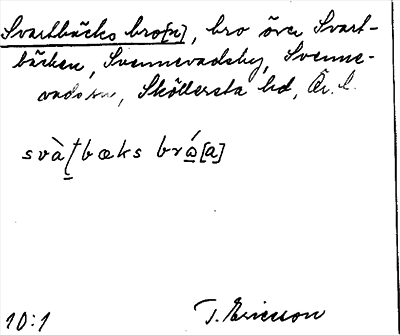 Svartbäcks bro[n], bro över Svart-
bäcken, Svennevadsby, Svenne-
vads sn, Sköllersta hd, Ör. l.
svàʈbæks brώ[a]
10:1 T. Ericsson